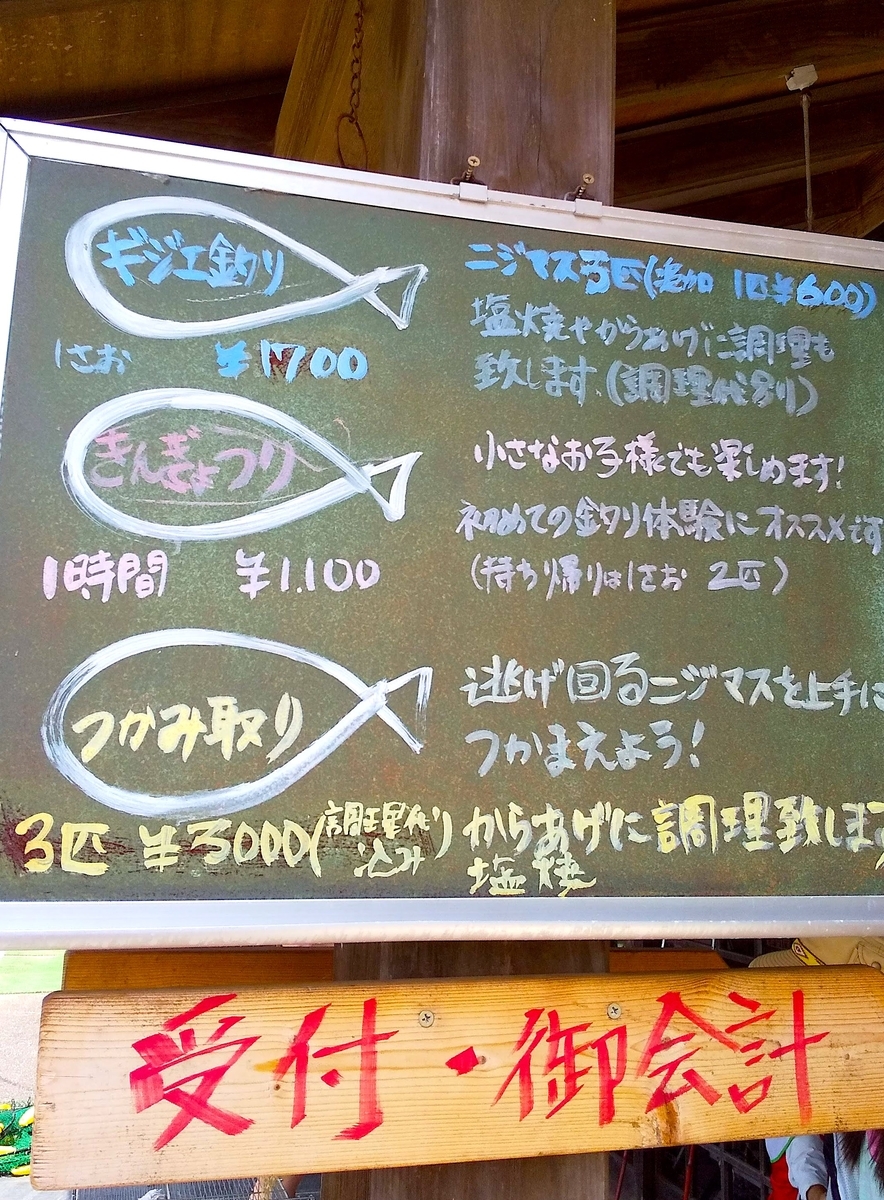 ギジエ釣り
1さお ¥1700
ニジマス5匹(追加 1匹¥600)
塩焼やからあげに調理も
致します(調理代別り)
きんぎょつり
1時間 ¥1.100
小さなお子様でも楽しめます!
初めての釣り体験にオススメです
(持ち帰りは1さお 2匹)
つかみ取り
3匹 ¥3000(調理代込み)
逃げ回るニジマスを上手に
つかまえよう!
からあげに調理致します
塩焼
受付・御会計